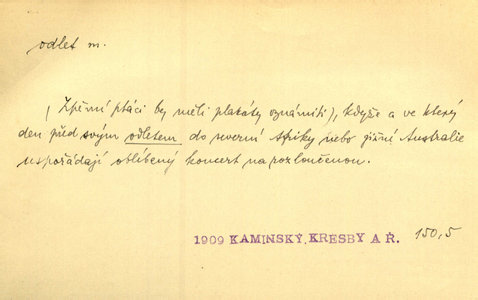 odlet m.
(Zpěvní ptáci by měli plakáty oznámiti), kdyže a ve který
den před svým odletem do severní Afriky nebo jižné Australie
uspořádají oblíbený koncert na rozloučenou.
1909 KAMINSKÝ, KRESBY A Ř. 150,5